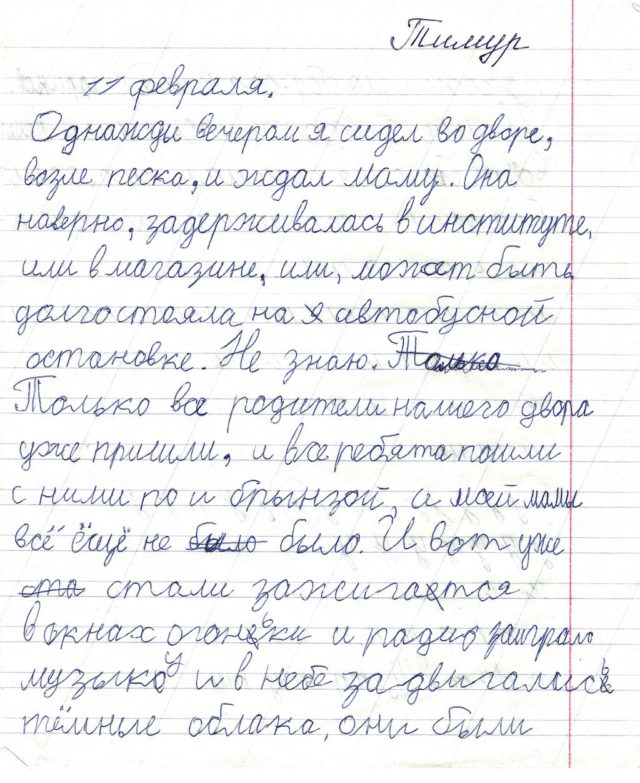 Тимур
11 февраля.
Однажди вечером я сидел во дворе,
возле песка, и ждал маму. Она
наверно, задерживалась в институте,
или в магазине, или, может быть
долго стояла на автобусной
остановке. Не знаю. Только
Только все родители нашего двора
уже пришли, и все ребята пошли
с ними по и брынзой, а моей мамы
всё ёщё не было было. И вот уже
ста стали зажигатся
в окнах огоньки и радио заиграло
музыку и в небе задвигались
тёмные облака, они были